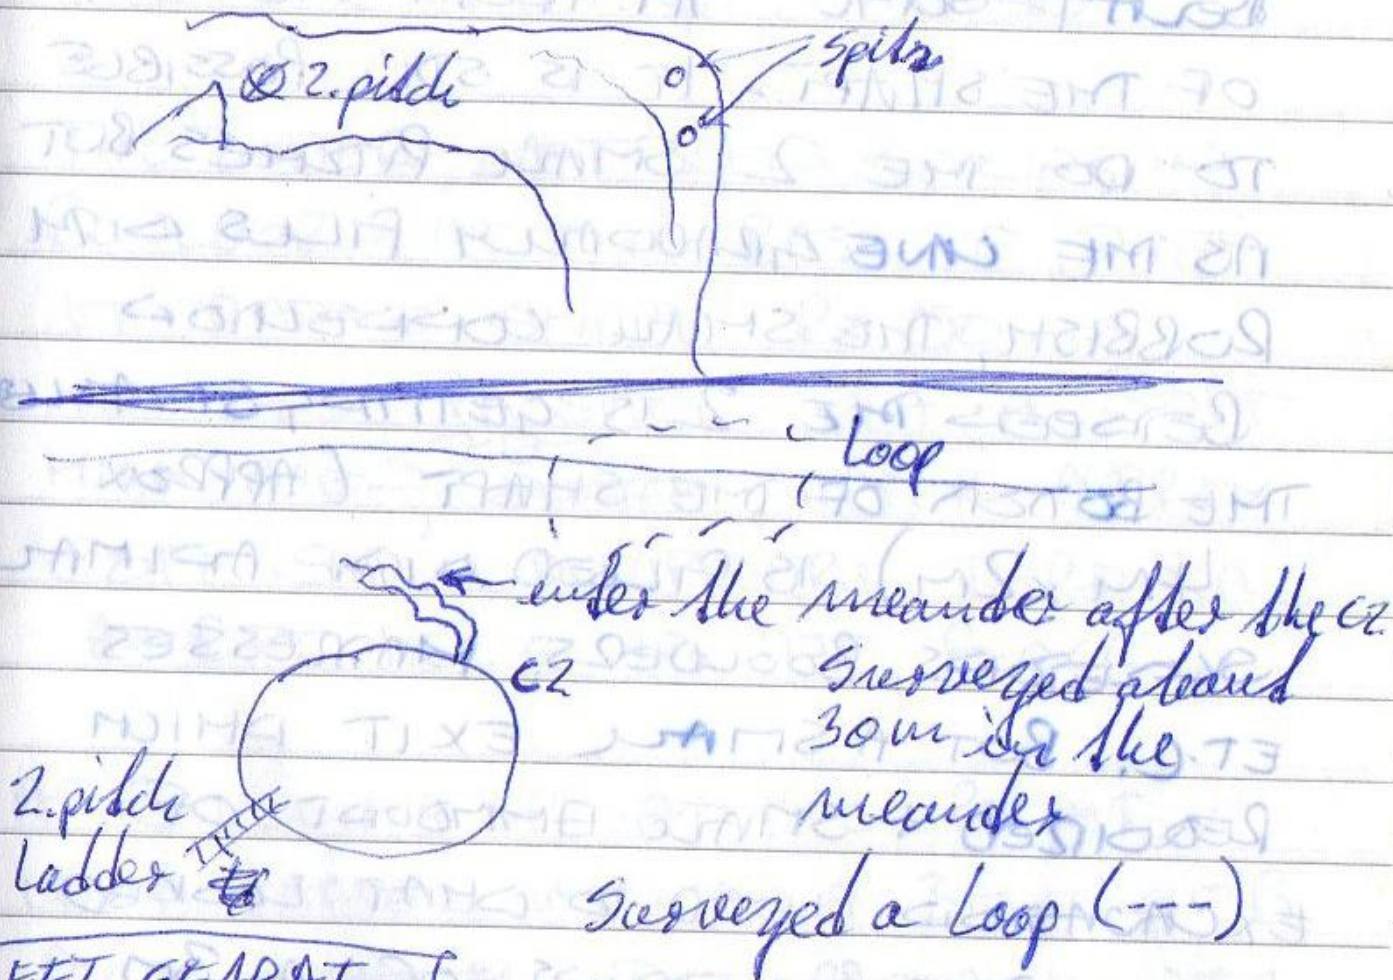 spits
2.pitch
Loop
enter the meander after the C2
C2
Surveyed about
30m in the
meander
2.pitch
Ladder
Surveyed a Loop (---)